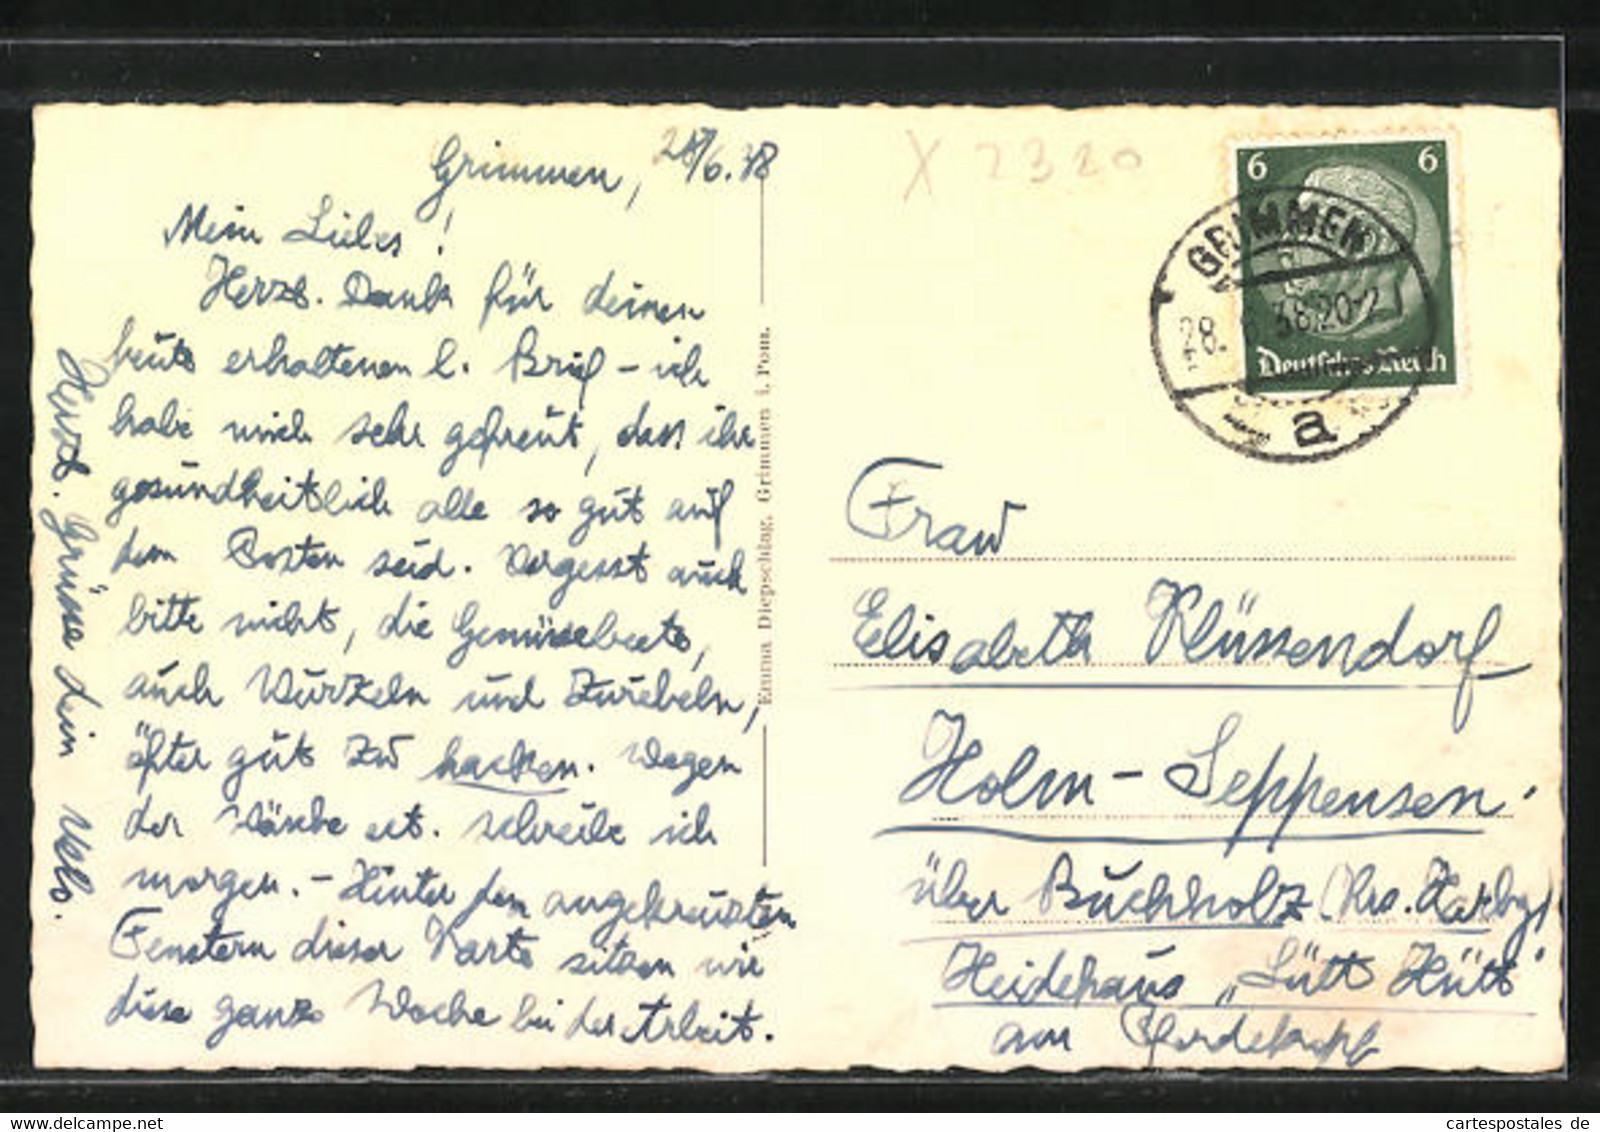 Grimmen, 28/6.38
Mein Liebes!
Herzl. Dank für deinen
heute erhaltenen l. Brief - ich
habe mich sehr gefreut, dass ihr
gesundheitlich alle so gut auf
dem Posten seid. Vergesst auch
bitte nicht, die Gemüsebeete,
auch Wurzeln und Zwiebeln,
öfter gut zu hacken. Wegen
der Wäsche ect. schreibe ich
morgen. - Hinter den angekreuzten
Fenstern dieser Karte sitzen wir
diese ganze Woche bei der Arbeit.
Herzl. Grüsse dein
Emma Diepschlag, Grimmen i. Pom.
X 2320
6 6
Deutsches Reich
GRIMMEN
28. 6. 38.20-21
a
Frau
Elisabeth Klüssendorf
Holm-Seppensen
über Buchholz (Krs. Harbg)
Heidehaus „Lütt Hütt"
am
cartespostales de